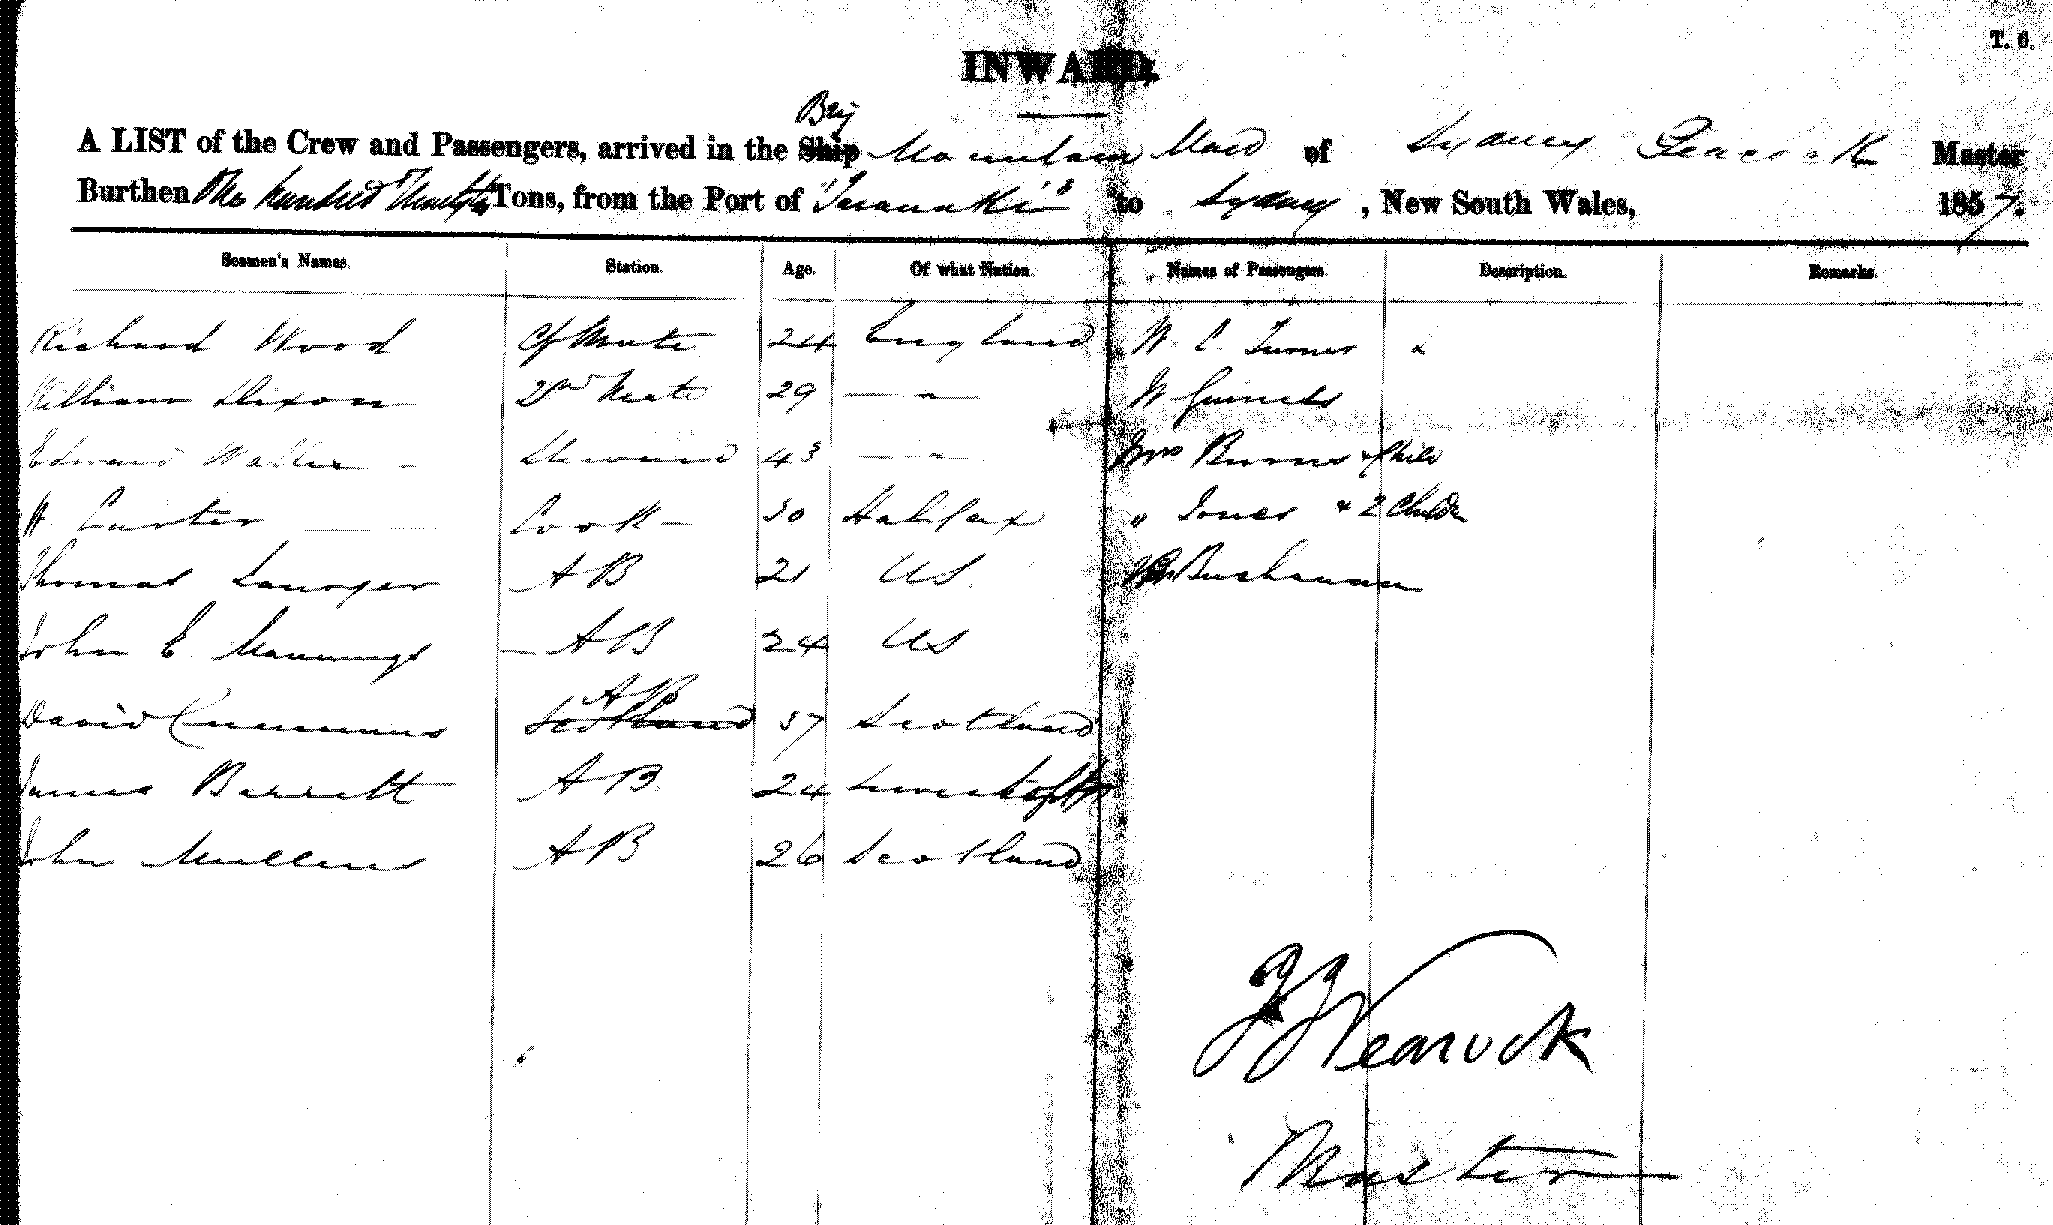 T. 6.
INWARD.
Brig
A LIST of the Crew and Passengers, arrived in the Ship Mountain Maid of Sydney Peacock Master
Burthen One hundred Tons, from the Port of "Taranaki" to Sydney, New South Wales, 1857.
Seamen's Names. Station. Age. Of what Nation. Names of Passengers. Description. Remarks.
Richard Wood Cf Mate 24 England W. C. Turner "
William Dixon 2nd Mate 29 — " — W
Edward Waller - Steward 43 — " — Mrs Burns & Child
W Carter — Cook - 30 Halifax " Jones & 2 Childn
Thomas A B 21 US. Buchanan
John E. Mannings - A B 24 US
David Cummins A B Scotland 37 Scotland
James Barratt A B 24 Lowestoft
John Mullens A B 26 Scotland
J J Peacock
Master